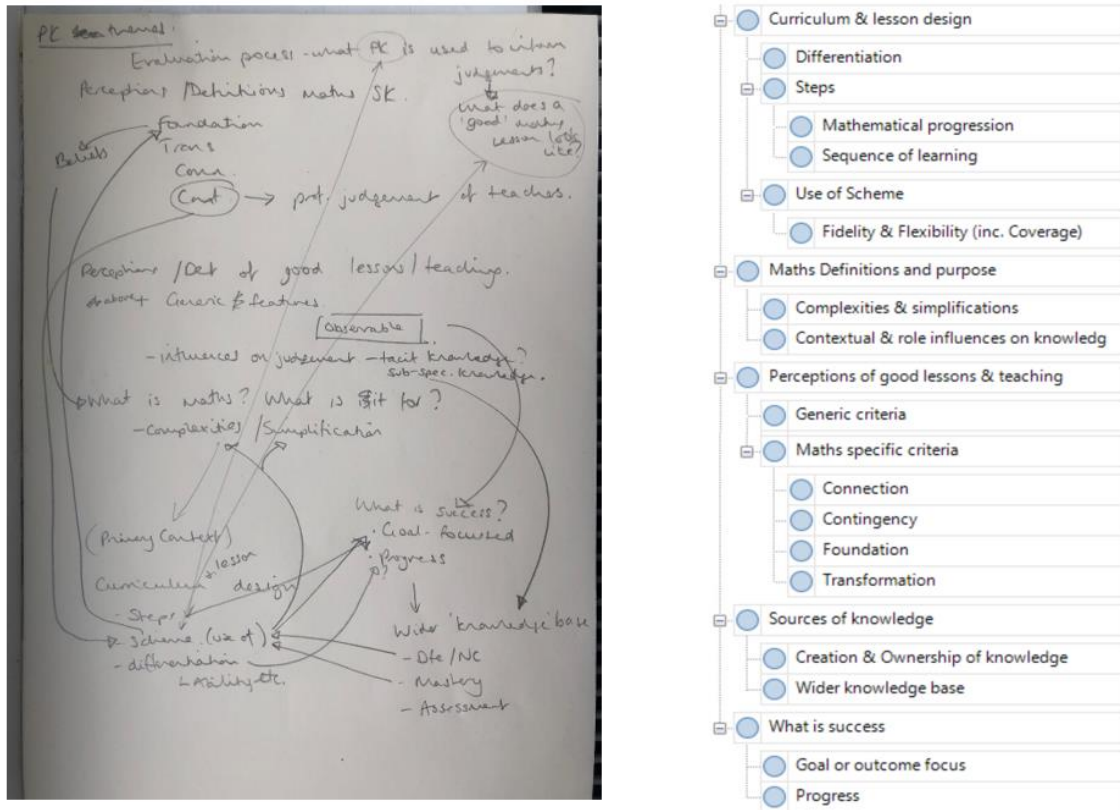 PK themes.
Evaluation process - what PK is used to inform
judgements?
Perceptions / Definitions maths SK.
What does a
'good' maths
lesson look
like?
Foundation
Beliefs
Trans
Conn.
Cont. → judgement of teaches.
Perceptions / Def of good lessons / teaching.
Generic features.
Observable
- influences on judgement - tacit knowledge?
sub-spec. knowledge.
What is maths? What is it for?
- complexities / Simplification
What is success?
(Primary Context)
· Goal - focused
· Progress
Curriculum + lesson design
- Steps
- Scheme (use of)
- differentiation
- Ability etc.
Wider 'knowledge' base
- Dfe / NC
- Mastery
- Assessment
Curriculum & lesson design
Differentiation
Steps
Mathematical progression
Sequence of learning
Use of Scheme
Fidelity & Flexibility (inc. Coverage)
Maths Definitions and purpose
Complexities & simplifications
Contextual & role influences on knowledg
Perceptions of good lessons & teaching
Generic criteria
Maths specific criteria
Connection
Contingency
Foundation
Transformation
Sources of knowledge
Creation & Ownership of knowledge
Wider knowledge base
What is success
Goal or outcome focus
Progress